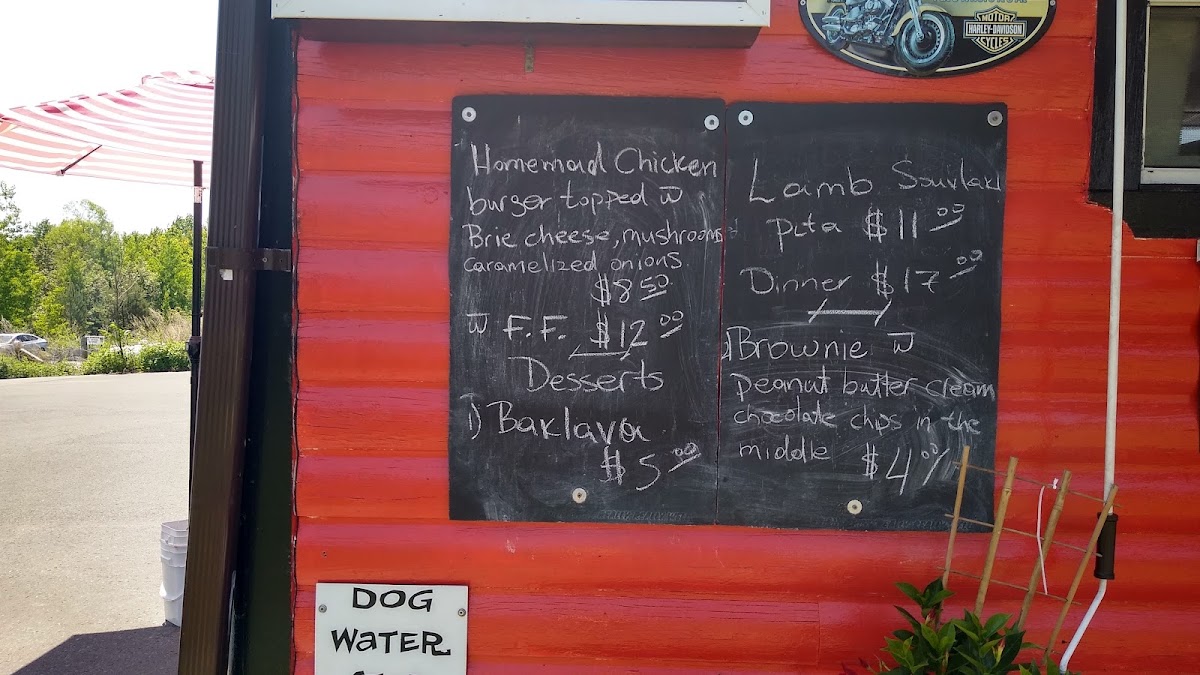 MOTOR
HARLEY-DAVIDSON
CYCLES
Homemad Chicken
burger topped w̅
Brie cheese, mushrooms
caramelized onions
$8 50
w̅ F.F. $12 00
Desserts
1) Baklava
$5 00
Lamb Souvlaki
Pita $11 00
Dinner $17 00
Brownie w̅
peanut butter cream
chocolate chips in the
middle $4 00
DOG
WATER